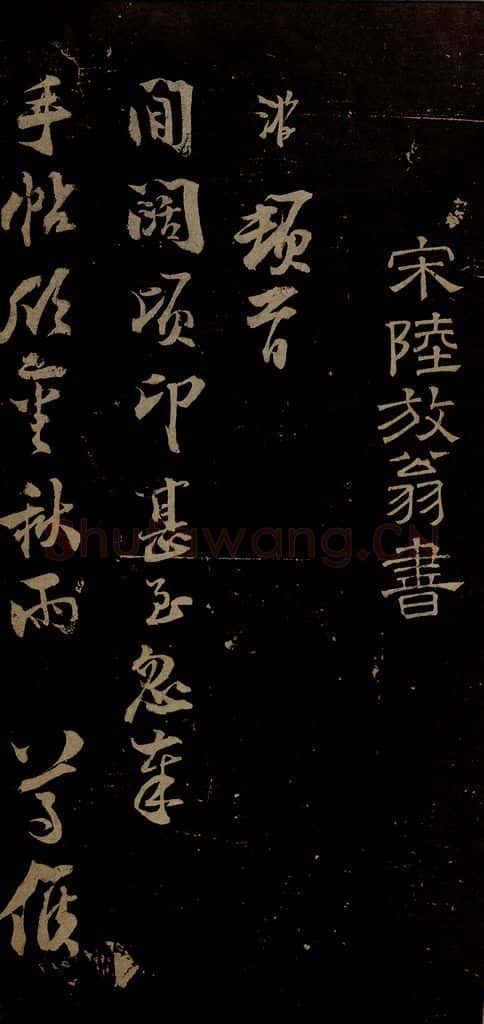 宋陸放翁書
游頓首
間闊頃卬甚至忽奉
手帖欣審秋雨 尊候
Shufawang.CN